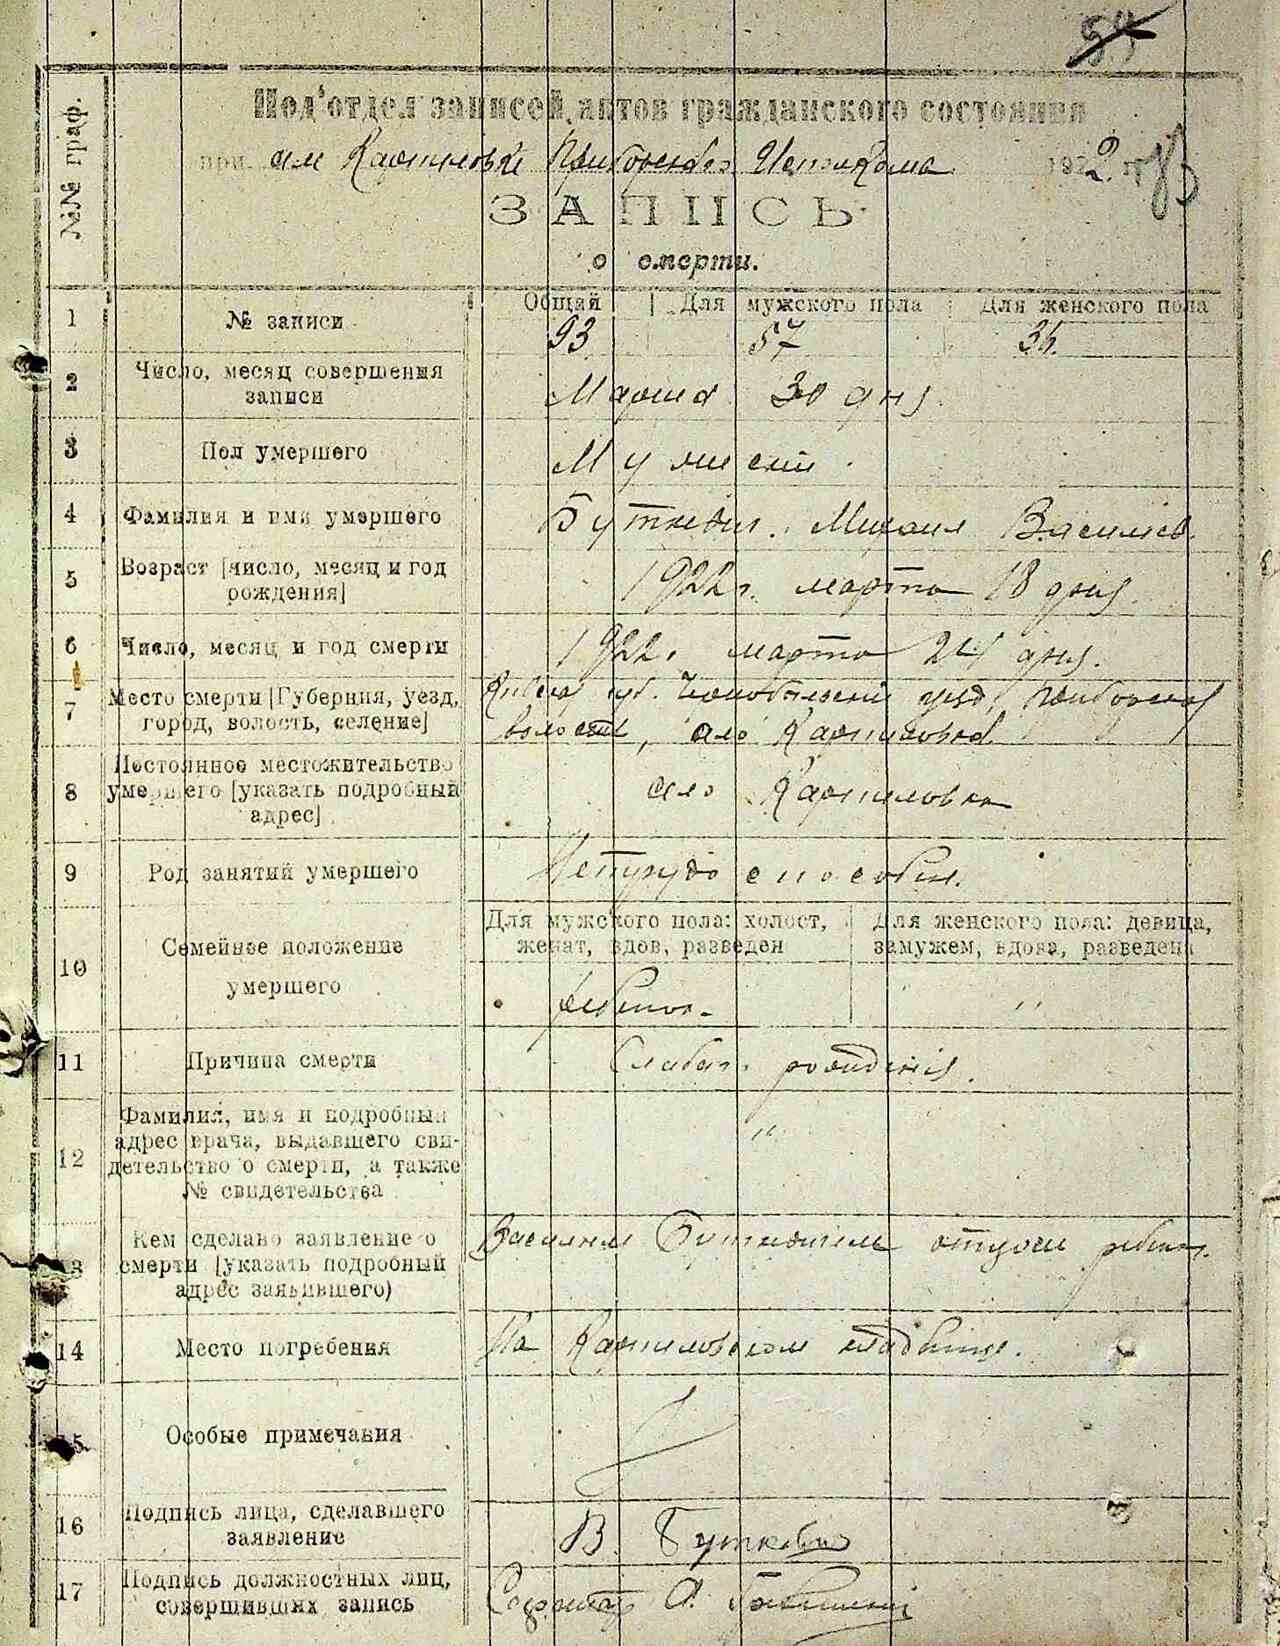 Под'отдел записей актов гражданского состояния
при Карпиловке Приборского Исполкома 1922 г.
ЗАПИСЬ
о смерти.
№№ граф.
Общий Для мужского пола Для женского пола
1 № записи 93 57 36.
2 Число, месяц совершения
записи
Марта 30 дня
3 Пол умершего
4 Фамилия и имя умершего Буткевич. Михаил Васильев.
5 Возраст [число, месяц и год
рождения]
1922 г. марта 18 дня
6 Число, месяц и год смерти 1922 г. марта 24 дня.
7 Место смерти [Губерния, уезд,
город, волость, селение]
губ. Чернобыльский уезд, Приборская
волость, село Карпиловка
8 Постоянное местожительство
умершего [указать подробный
адрес]
село Карпиловка
9 Род занятий умершего
10 Семейное положение
умершего
Для мужского пола: холост,
женат, вдов, разведен
Для женского пола: девица,
замужем, вдова, разведена
"
11 Причина смерти рождения.
12 Фамилия, имя и подробный
адрес врача, выдавшего сви-
детельство о смерти, а также
№ свидетельства
"
13 Кем сделано заявление о
смерти [указать подробный
адрес заявившего)
Василием Буткевичем отцом
14 Место погребения На Карпиловском кладбище.
15 Особые примечания
16 Подпись лица, сделавшего
заявление
В. Буткевич
17 Подпись должностных лиц,
совершивших запись